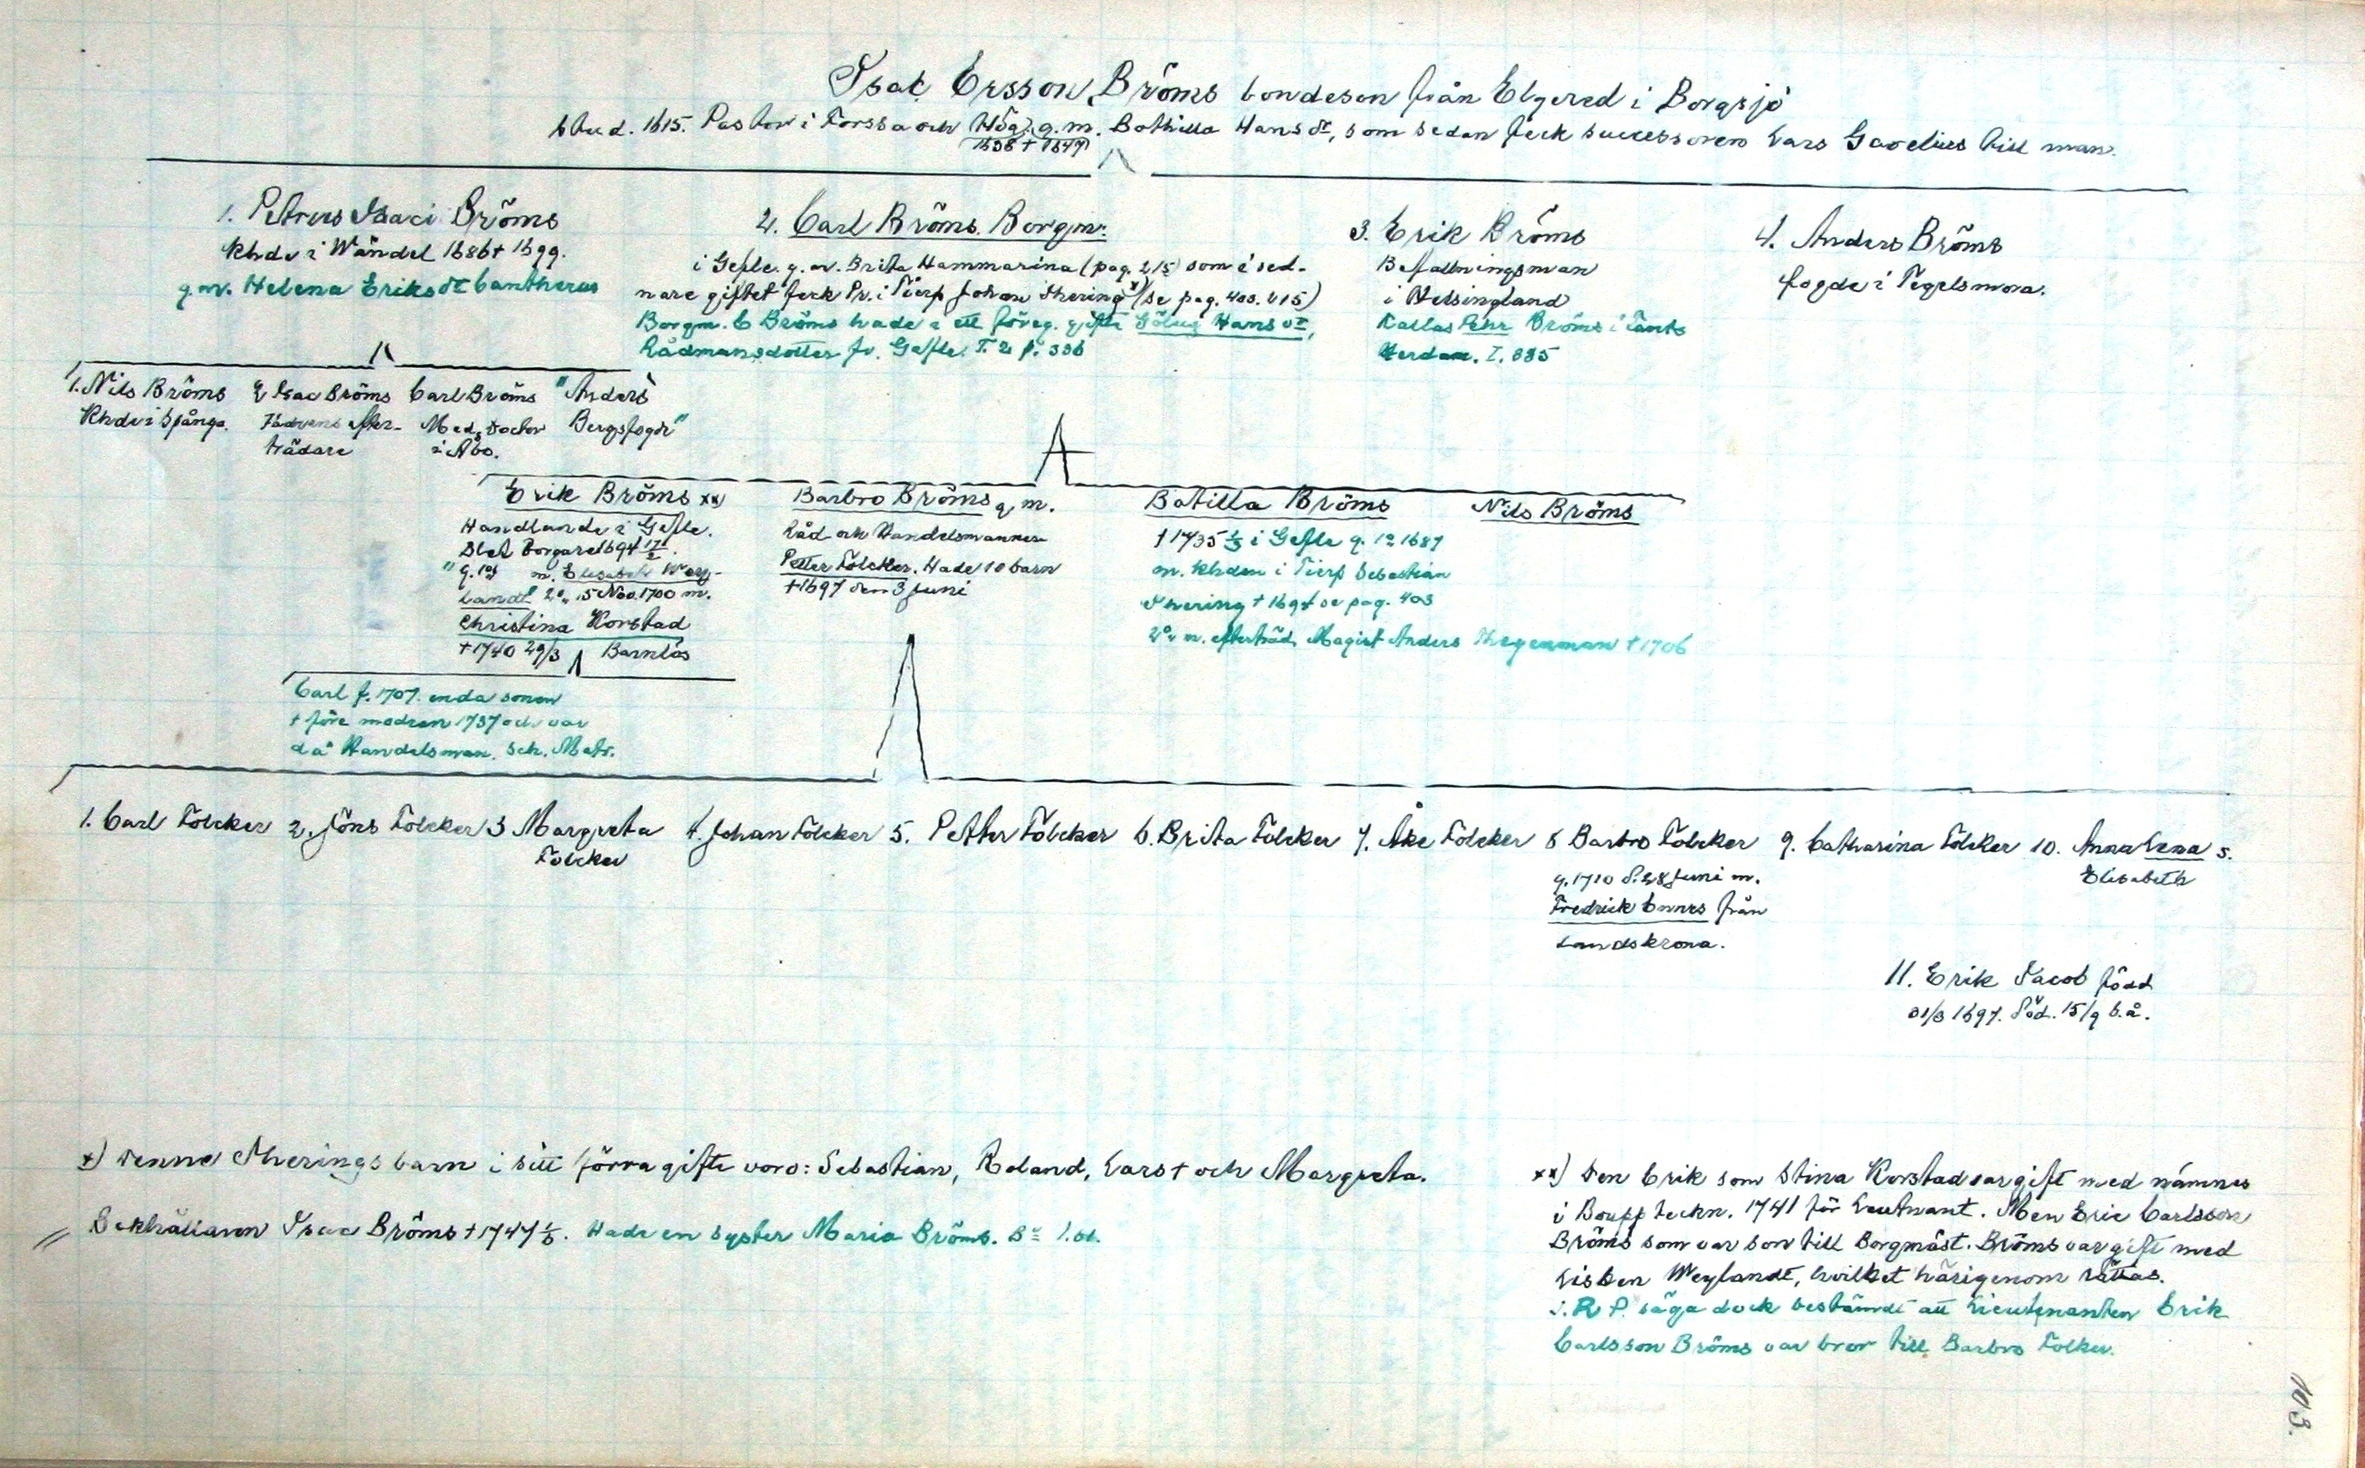 Isac Ersson Bröms bondeson från Elgered i Borgsjö
Stud. 1615. Pastor i Forssa och Hög, g.m. Bothilla Hansdr, som sedan feck successoren Lars Gavelius till man.
1638 † 1647
1. Petrus Isaci Bröms
Khde i Wändel 1686 † 1699.
g.m. Helena Eriksdr Cantherus
2. Carl Bröms. Borgm.
i Gefle. g.m. Brita Hammarina (pag. 215) som i sed-
nare giftet feck Pr. i Tierp Johan Ihering x) (se pag. 403. 415)
Borgm. C Bröms hade i ett föreg. gifte Sölug Hansdr,
Rådmansdotter fr. Gefle. T. 2 p. 336
3. Erik Bröms
Befallningsman
i Helsingland
Kallas Pehr Bröms i
I. 885
4. Anders Bröms
fogde i Tegelsmora.
1. Nils Bröms
Khde i Spånga.
2 Isac Bröms
Fadrens efter-
trädare
Carl Bröms
Med. Doctor
i Åbo.
"Anders
Bergsfogde"
Erik Bröms xx)
Handlande i Gefle.
Blef Borgare 1694 17/2.
"G. 1o m. Elisabeth Wey-
landt" 2o 15 Nov. 1700 m.
Christina Korstad
† 1740 29/3 Barnlös
Barbro Bröms g.m.
Råd och Handelsmannen
Petter Fölcker. Hade 10 barn
† 1697 den 3 Juni
Botilla Bröms
† 1735 i Gefle g. 1o 1687
m. Khden i Tierp Sebastian
Ihering † 1694 se pag. 403
2o m. efterträd. Magist Anders Thegerman † 1706
Nils Bröms
Carl f. 1707. enda sonen
† före modren 1737 och var
då Handelsman. Sch. Matr.
1. Carl Fölcker 2. Jöns Fölcker 3 Margreta 4. Johan Fölcker 5. Petter Fölcker 6. Brita Fölcker 7. Åke Fölcker 8 Barbro Fölcker 9. Catharina Fölcker 10. Anna Lena s.
Fölcker
Elisabeth
g. 1710 d. 28 Juni m.
Fredrick Ennes från
Landskrona.
11. Erik Jacob född
31/3 1697. Död. 15/9 s.å.
x) Denne Iherings barn i sitt förra gifte voro: Sebastian, Roland, Lars † och Margreta.
Bokhållaren Isac Bröms † 1747. Hade en syster Maria Bröms.
xx) Den Erik som Stina Korstad var gift med nämnes
i Boupp teckn. 1741 för Leutnant. Men Eric Carlsson
Bröms som var son till Borgmäst. Bröms var gift med
Lisken Weylandt, hvilket härigenom rättas.
R P. säga dock bestämdt att Lieutenanten Erik
Carlsson Bröms var bror till Barbro Folker.
103.